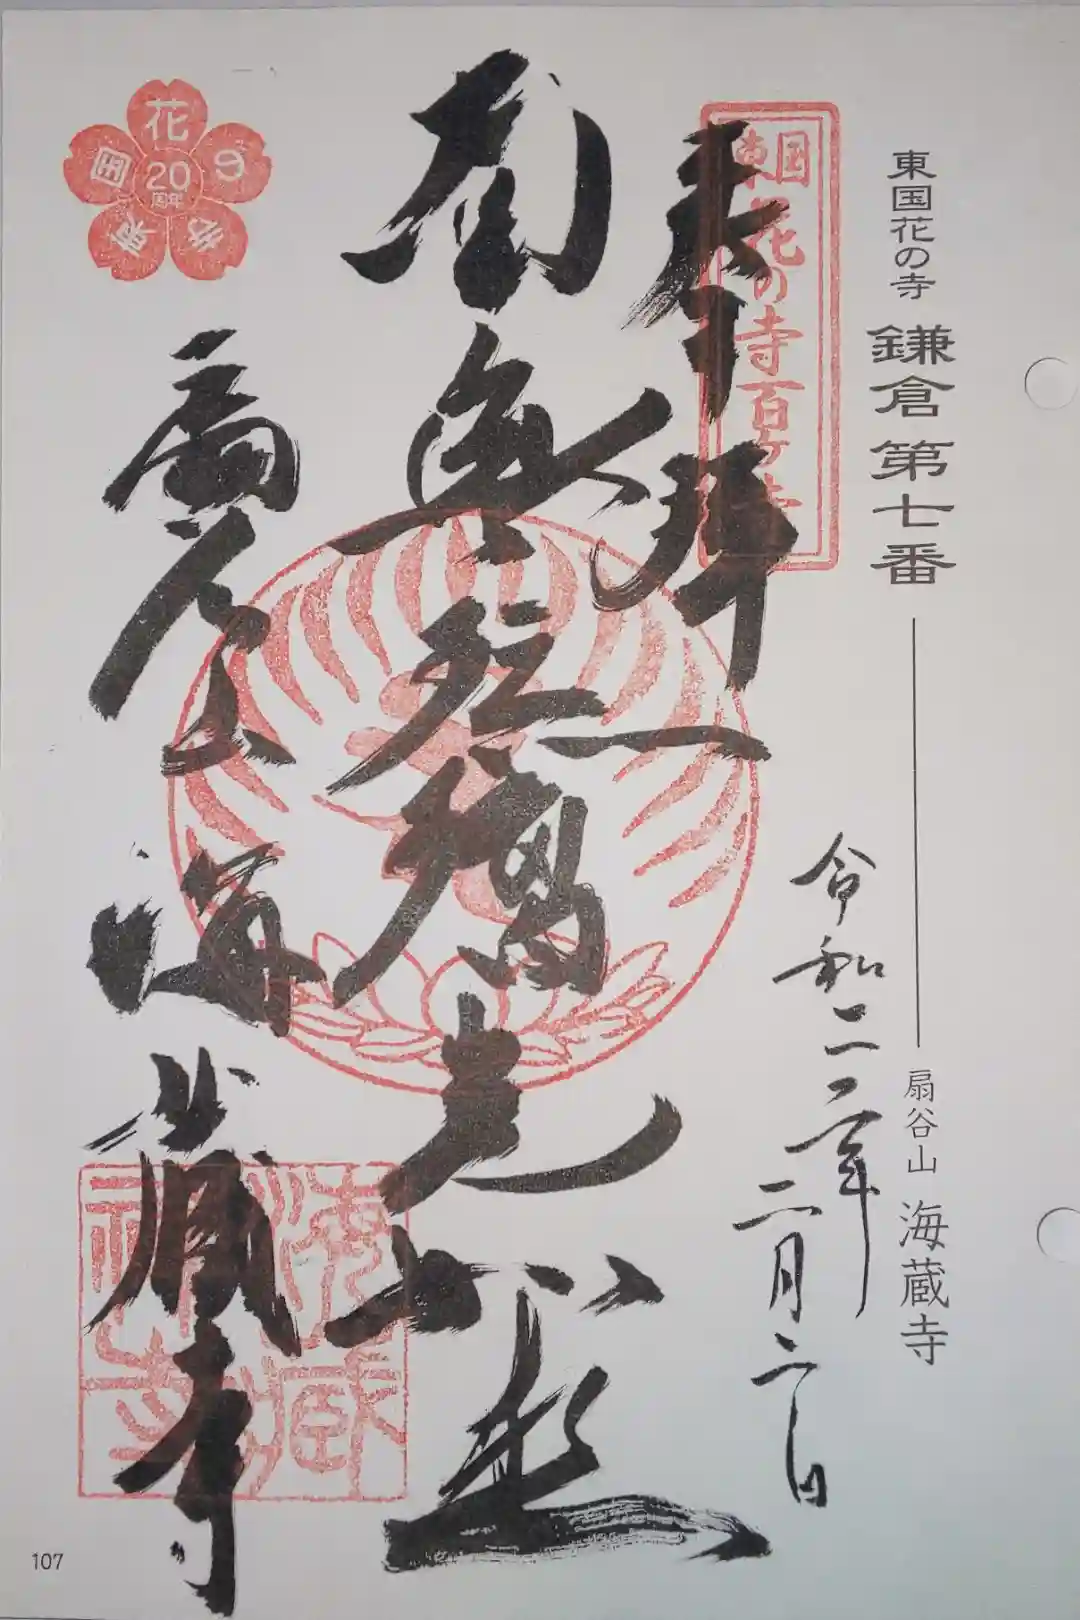 東国花の寺 鎌倉第七番 扇谷山 海蔵寺
東国花の寺百ヶ寺
奉拝
令和二年二月
南無瑠璃光如来
扇谷山 海蔵寺
東国花の寺
20
周年
107